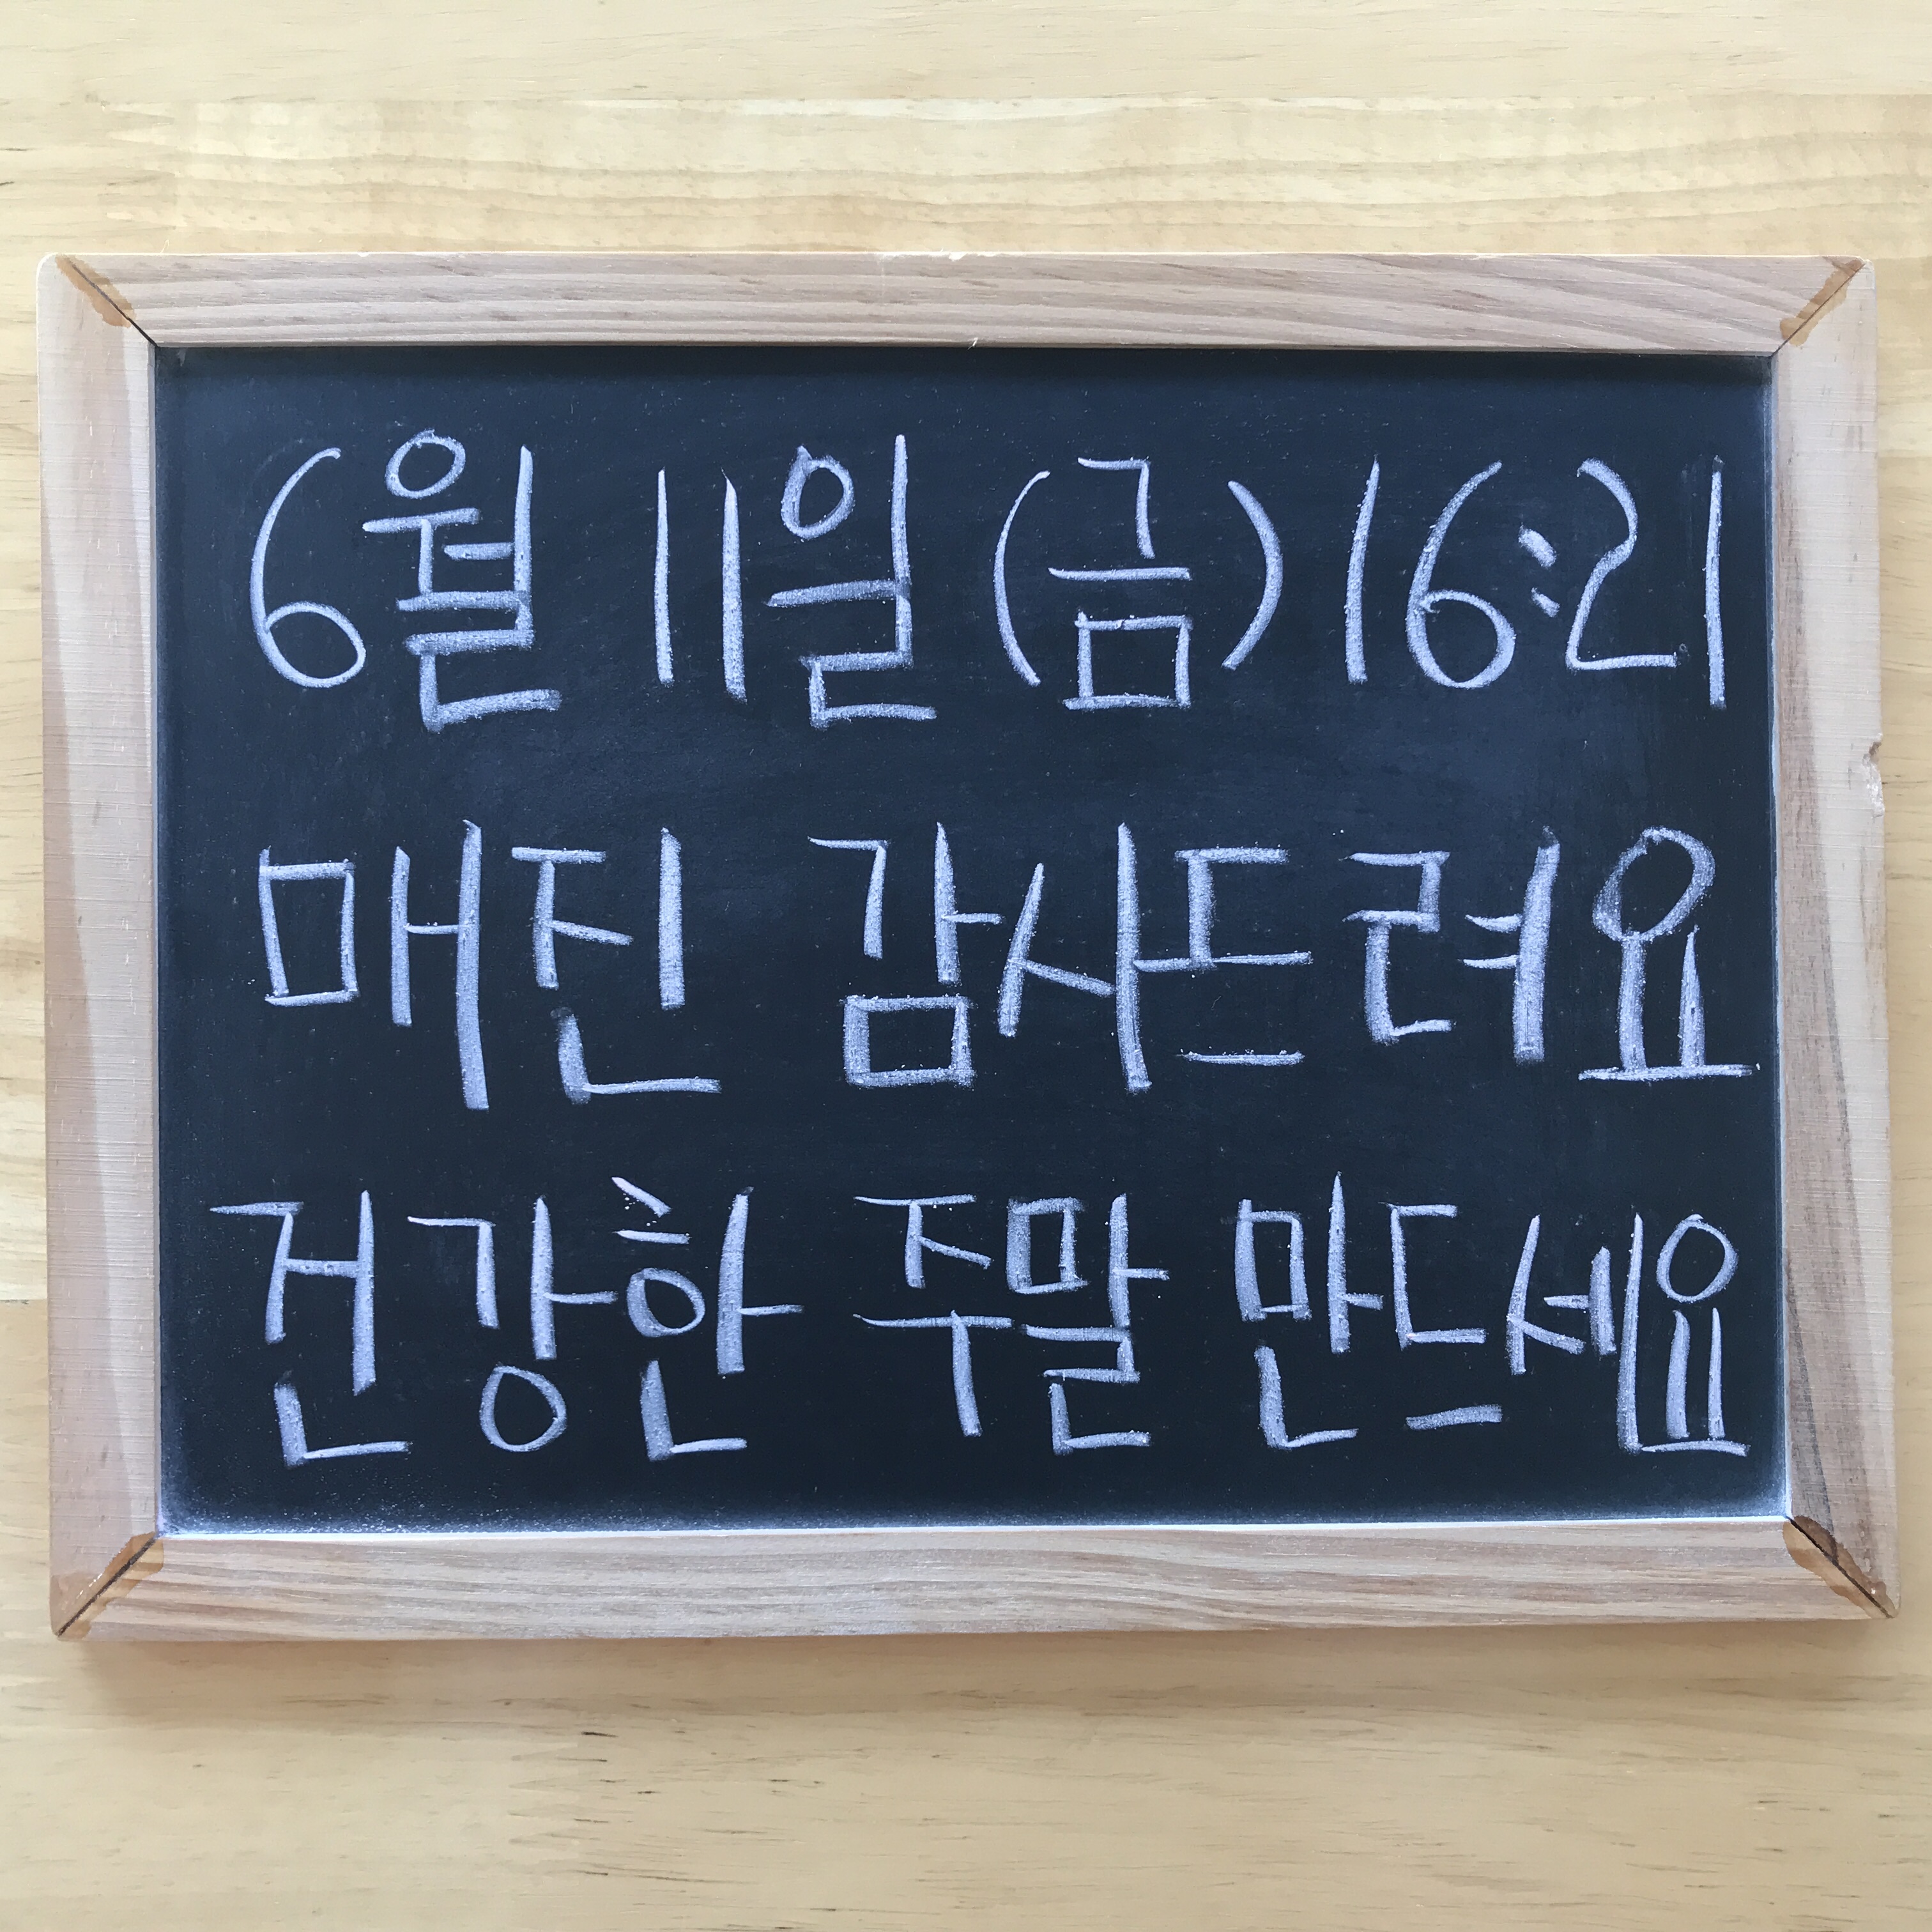 6월 11일 (금) 16:21
매진 감사드려요
건강한 주말 만드세요